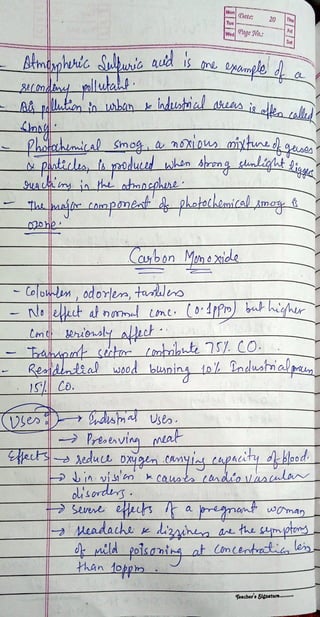 Mon Tue Wed Date: 20 Thu Fri Sat
Page No.:
- Atmospheric Sulfuric acid is one example of a
secondary pollutant.
- Air pollution in urban & industrial areas is often called
Smog
- Photochemical smog, a noxious mixture of gases
& particles, is produced when strong sunlight trigges
reactions in the atmosphere.
- The major component of photochemical smog is
ozone.
Carbon Monoxide
- Colourless, odorless, tasteless
- No effect at normal conc. (0.1ppm) but higher
conc seriously affect.
- Transport sector contribute 75% CO.
- Residential wood burning 10% Industrial
15% CO.
Uses: → Industrial Uses.
→ Preserving meat
Effects → reduce oxygen carrying capacity of blood.
→ ↓ in vision & causes cardiovascular
disorders.
→ Severe effects of a pregnant woman
→ Headache & dizziness are the symptoms
of mild poisoning at concentration less
than 10ppm.
Teacher's Signature